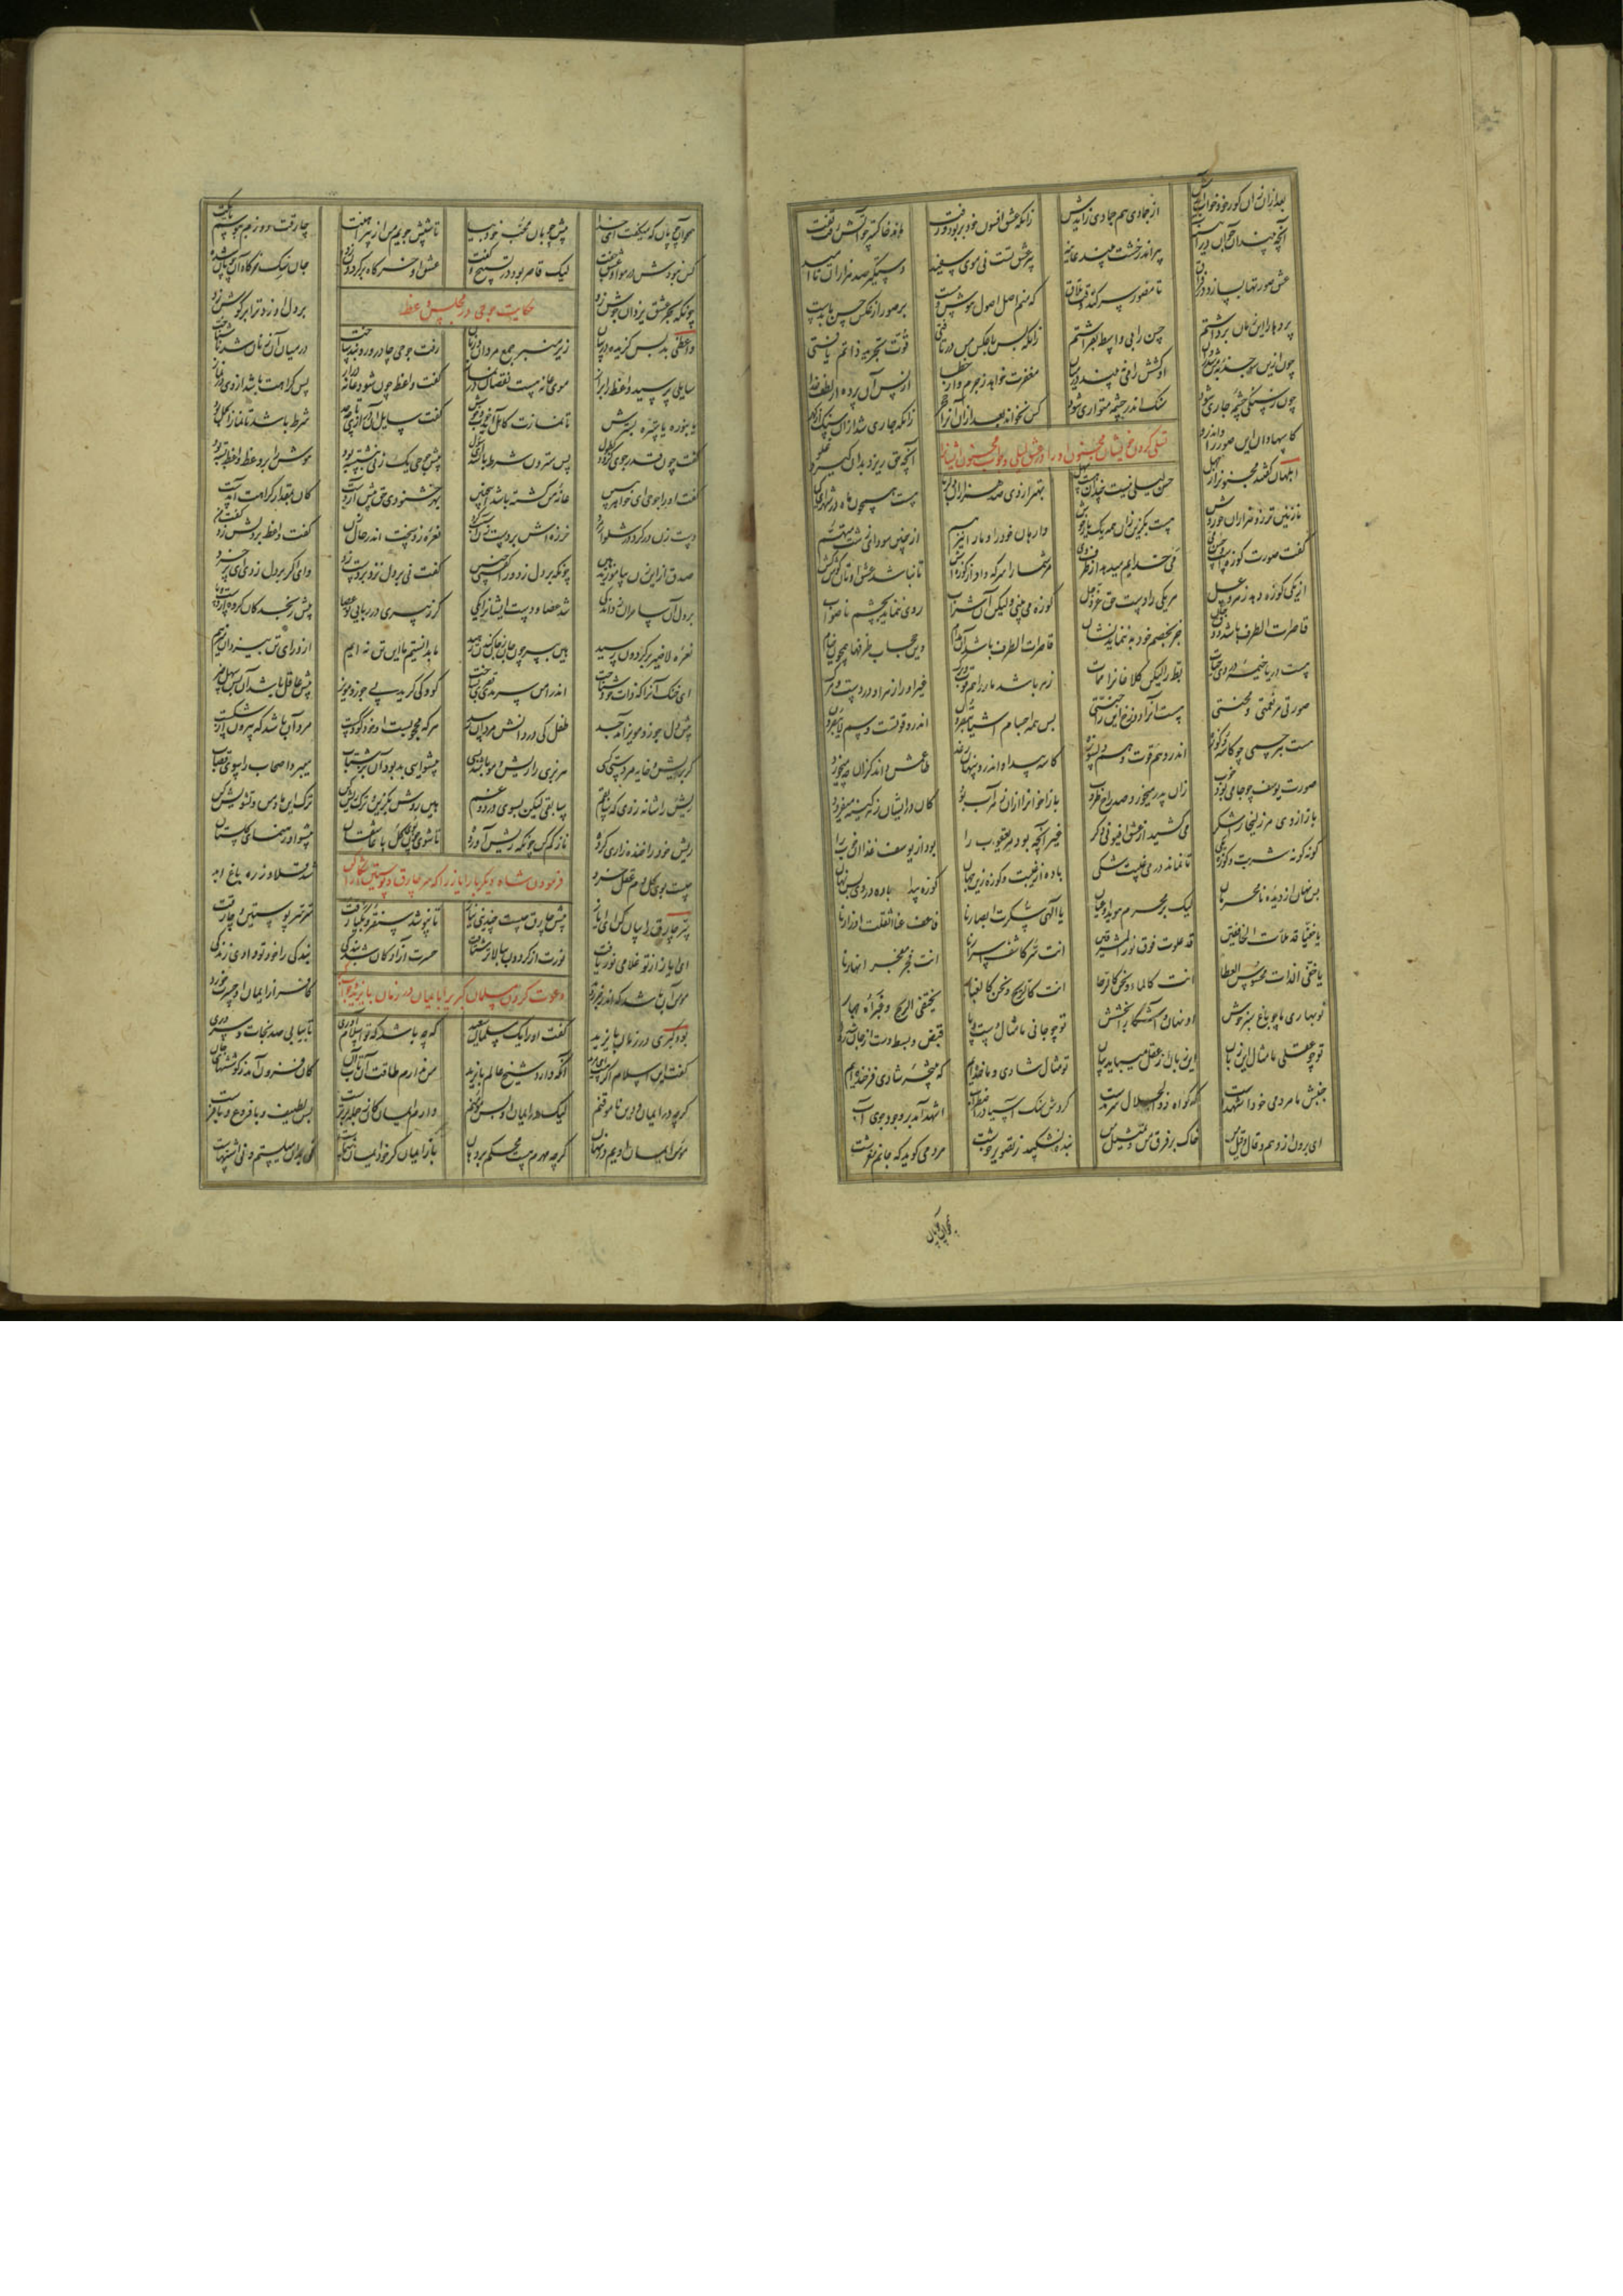 بعد ازان زان کور خود خواب آیدش از جمادی هم جمادی زایدش زانکه عشق افسون خود بربود و رفت ماند خاکستر چو آتش رفت تفت
آنچه بیند آن جوان در آینه پیر اندر خشت بیند عاینه پیر عشق تست نی موی سپید دستگیر صد هزاران ناامید
عشق صورتها بسازد در فراق تا مصور سر کند وقت تلاق که منم اصل اصول هوش و مست بر صور آن عکس حسن ما بدست
پرده‌ها را این زمان برداشتم حسن را بی واسطه بفراشتم زانکه بس با عکس من در بافتی قوت تجرید ذاتم یافتی
چون ازین سو جذبهٔ من شد روان او کشش را می‌نبیند در میان مغفرت می‌خواهد از جرم و خطا از پس آن پرده از لطف خدا
چون ز سنگی چشمهٔ جاری شود سنگ اندر چشمه متواری شود کس نخواند بعد ازان آنرا حجر زانکه جاری شد از آن سنگ آن گهر
کاسها دان این صور را واندرو آنچه حق ریزد بدان گیرد علو
تسلی کردن خویشان مجنون او را در عشق لیلی و جواب مجنون ایشانرا
ابلهان گفتند مجنون را ز جهل حسن لیلی نیست چندان هست سهل بهتر از وی صد هزاران دلربا هست همچون ماه در شهر ای کیا
نازنین‌تر زو هزاران حوروش هست بگزین زان همه یک یار خوش وارهان خود را و ما را نیز هم از چنین سودای زشت متهم
گفت صورت کوزه است و حسن می می خدایم میدهد از ظرف وی مر شما را سرکه داد از کوزه‌اش تا نباشد عشق اوتان گوش کش
از یکی کوزه دهد زهر و عسل هر یکی را دست حق عز و جل کوزه می‌بینی ولیکن آن شراب روی ننماید بچشم ناصواب
قاصرات الطرف باشد ذوق جان جز بخصم خود بننماید نشان قاصرات الطرف باشد آن مدام وین حجاب ظرفها همچون خیام
هست دریا خیمهٔ در وی حیات بط را لیکن کلاغان را ممات زهر باشد مار را هم قوت و برگ غیر او را زهر او دردست و مرگ
صورت هر نعمتی و محنتی هست آن را دوزخ این را جنتی پس همه اجسام اشیا تبصرون اندرو قوتست و سم لا تبصرون
هست هر جسمی چو کاسه و کوزهٔ اندر او هم قوت و هم دلسوزهٔ کاسه پیدا و اندرو پنهان رغد طاعمش داند کزان چه میخورد
صورت یوسف چو جامی بود خوب زان پدر میخورد صد باده طروب باز اخوان را از آن زهراب بود کان در ایشان زهر کینه میفزود
باز از وی مر زلیخا را شکر می‌کشید از عشق افیونی دگر غیر آنچه بود مر یعقوب را بود از یوسف غذا آن خوب را
گونه گونه شربت و کوزه یکی تا نماند در می غیبت شکی باده از غیبت و کوزه زین جهان کوزه پیدا باده در وی بس نهان
بس نهان از دیدهٔ نامحرمان لیک بر محرم هویدا و عیان یا الهی سکرت ابصارنا فاعف عنا اثقلت اوزارنا
یا خفیا قد ملأت الخافقین قد علوت فوق نور المشرقین انت سر کاشف اسرارنا انت فجر مفجر انهارنا
یا خفی الذات محسوس العطا انت کالماء و نحن کالرحا انت کالریح و نحن کالغبار تختفی الریح و غبراه جهار
تو بهاری ما چو باغ سبز خوش او نهان و آشکارا بخششش تو چو جانی ما مثال دست و پا قبض و بسط دست از جان شد روا
تو چو عقلی ما مثال این زبان این زبان از عقل می‌یابد بیان تو مثال شادی و ما خنده‌ایم که نتیجه شادی فرخنده‌ایم
جنبش ما هر دمی خود اشهدست که گواه ذوالجلال سرمدست گردش سنگ آسیا در اضطراب اشهد آمد بر وجود جوی آب
ای برون از وهم و قال و قیل من خاک بر فرق من و تمثیل من بنده نشکیبد ز تصویر خوشت هر دمی گوید که جانم مفرشت
همچو آن چوپان
همچو آن چوپان که میگفت ای خدا پیش چوپان محب خود بیا تا شپش جویم من از پیراهنت چارقت دوزم ببوسم دامنت
کس نبودش در هوا و عشق جفت لیک قاصر بود در تسبیح و گفت عشق او خرگاه بر گردون زده جان سگ خرگاه آن چوپان شده
چونکه بحر عشق یزدان جوش زد بر دل او زد ترا بر گوش زد
حکایت جوحی در مجلس وعظ
واعظی بد بس گزیده در بیان زیر منبر جمع مردان و زنان رفت جوحی چادر و روبند ساخت در میان آن زنان شد ناشناخت
سایلی پرسید واعظ را براز موی عانه هست نقصان نماز گفت واعظ چون شود عانه دراز پس کراهت باشد از وی در نماز
یا بنوره یا ستره بسترش تا نمازت کامل آید خوب و خوش گفت سایل آن درازی تا چه حد شرط باشد تا نماز اکمل بود
گفت چون قدر جوی گردد بطول پس ستردن شرط باشد ای سؤول پیش جوحی یک زنی بنشسته بود هوش را بر وعظ واعظ بسته بود
گفت او را جوحی ای خواهر ببین عانهٔ من گشته باشد اینچنین بهر خشنودی حق پیش آر دست کان بمقدار کراهت آمدست
دست زن در کرد در شلوار مرد خرزه‌اش بر دست زن آسیب کرد نعرهٔ زد سخت اندر حال زن گفت واعظ بر دلش زد گفت من
صدق را زین زن بیاموزید هین چونکه بر دل زد ورا گفتی چنین گفت نی بر دل نزد بر دست زد وای اگر بر دل زدی ای پر خرد
بر دل آن ساحران زد اندکی شد عصا و دست ایشان را یکی گر ز پیری در ربایی تو عصا بیش رنجد کان گروه از دست و پا
نعرهٔ لا ضیر بر گردون رسید هین ببر چون جان ز جان کندن رهید ما بدانستیم ما این تن نه‌ایم از ورای تن بیزدان میزییم
ای خنک آن را که ذات خود شناخت اندر امن سرمدی قصری بساخت کودکی گرید پی جوز و مویز پیش عاقل باشد آن بس سهل چیز
پیش دل جوز و مویز آمد جسد طفل کی در دانش مردان رسد هر که محجوبست او خود کودکست مرد آن باشد که بیرون از شکست
گر بریش و خایه مردستی کسی هر بزی را ریش و مو باشد بسی پیشوایی بد بود آن بز شتاب میبرد اصحاب را پیش قصاب
ریش را شانه زدی که سابقم سابقی لیکن بسوی درد و غم هین روش بگزین و ترک ریش کن ترک این ما و من و تشویش کن
ریش خود را خنده زاری کرده‌ٔ ناز کم کن چونکه ریش آورده‌ٔ تا شوی چون بوی گل با عاشقان پیشوا و رهنمای گلستان
چیست بوی گل دم عقل و خرد شد قلاوز ره باغ ابد
فرمودن شاه دیگر بار ایاز را که سر چارق و پوستین آشکارا کن
سر چارق را بیان کن ای ایاز پیش چارق چیست چندین نیاز تا بنیوشد سنقر و بکیارقت سر سر پوستین و چارقت
ای ایاز از تو غلامی نور یافت نورت از گردون ببالا بر شتافت حسرت آزادگان شد بندگی بندگی را خود تو دادی زندگی
مؤمن آن باشد که اندر جزر و مد کافر از ایمان او حسرت خورد
دعوت کردن مسلمان گبری را بایمان در زمان بایزید و جواب
بود گبری در زمان بایزید گفت او را یک مسلمان سعید که چه باشد که تو اسلام آوری تا بیابی صد نجات و سروری
گفت این اسلام اگر هست ای مرید آنکه دارد شیخ عالم بایزید من ندارم طاقت آن تاب آن کان فزون آمد ز کوششهای جان
گرچه در ایمان و دین ناموقنم لیک در ایمان او بس مؤمنم دارم ایمان کان ز جمله برترست بس لطیف و با فروغ و با فرست
مؤمن ایمان اویم در نهان گرچه مهرم هست محکم بر دهان باز ایمان گر خود ایمان شماست نی بدان میلستم و نی اشتهاست